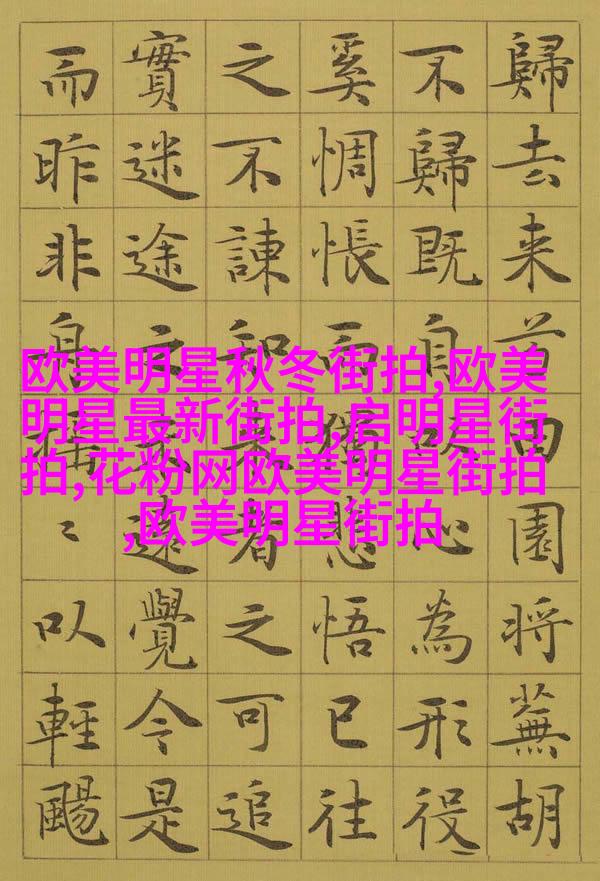 歸去来兮田園将蕪胡
不歸既自以心為形役
奚惆悵而獨悲悟已往
之不諫知来者之可追
實迷途其未遠覺今是
而昨非舟搖〻以輕颺
欧美明星秋冬街拍,欧美
明星最新街拍,启明星街
拍,花粉网欧美明星街拍
,欧美明星街拍